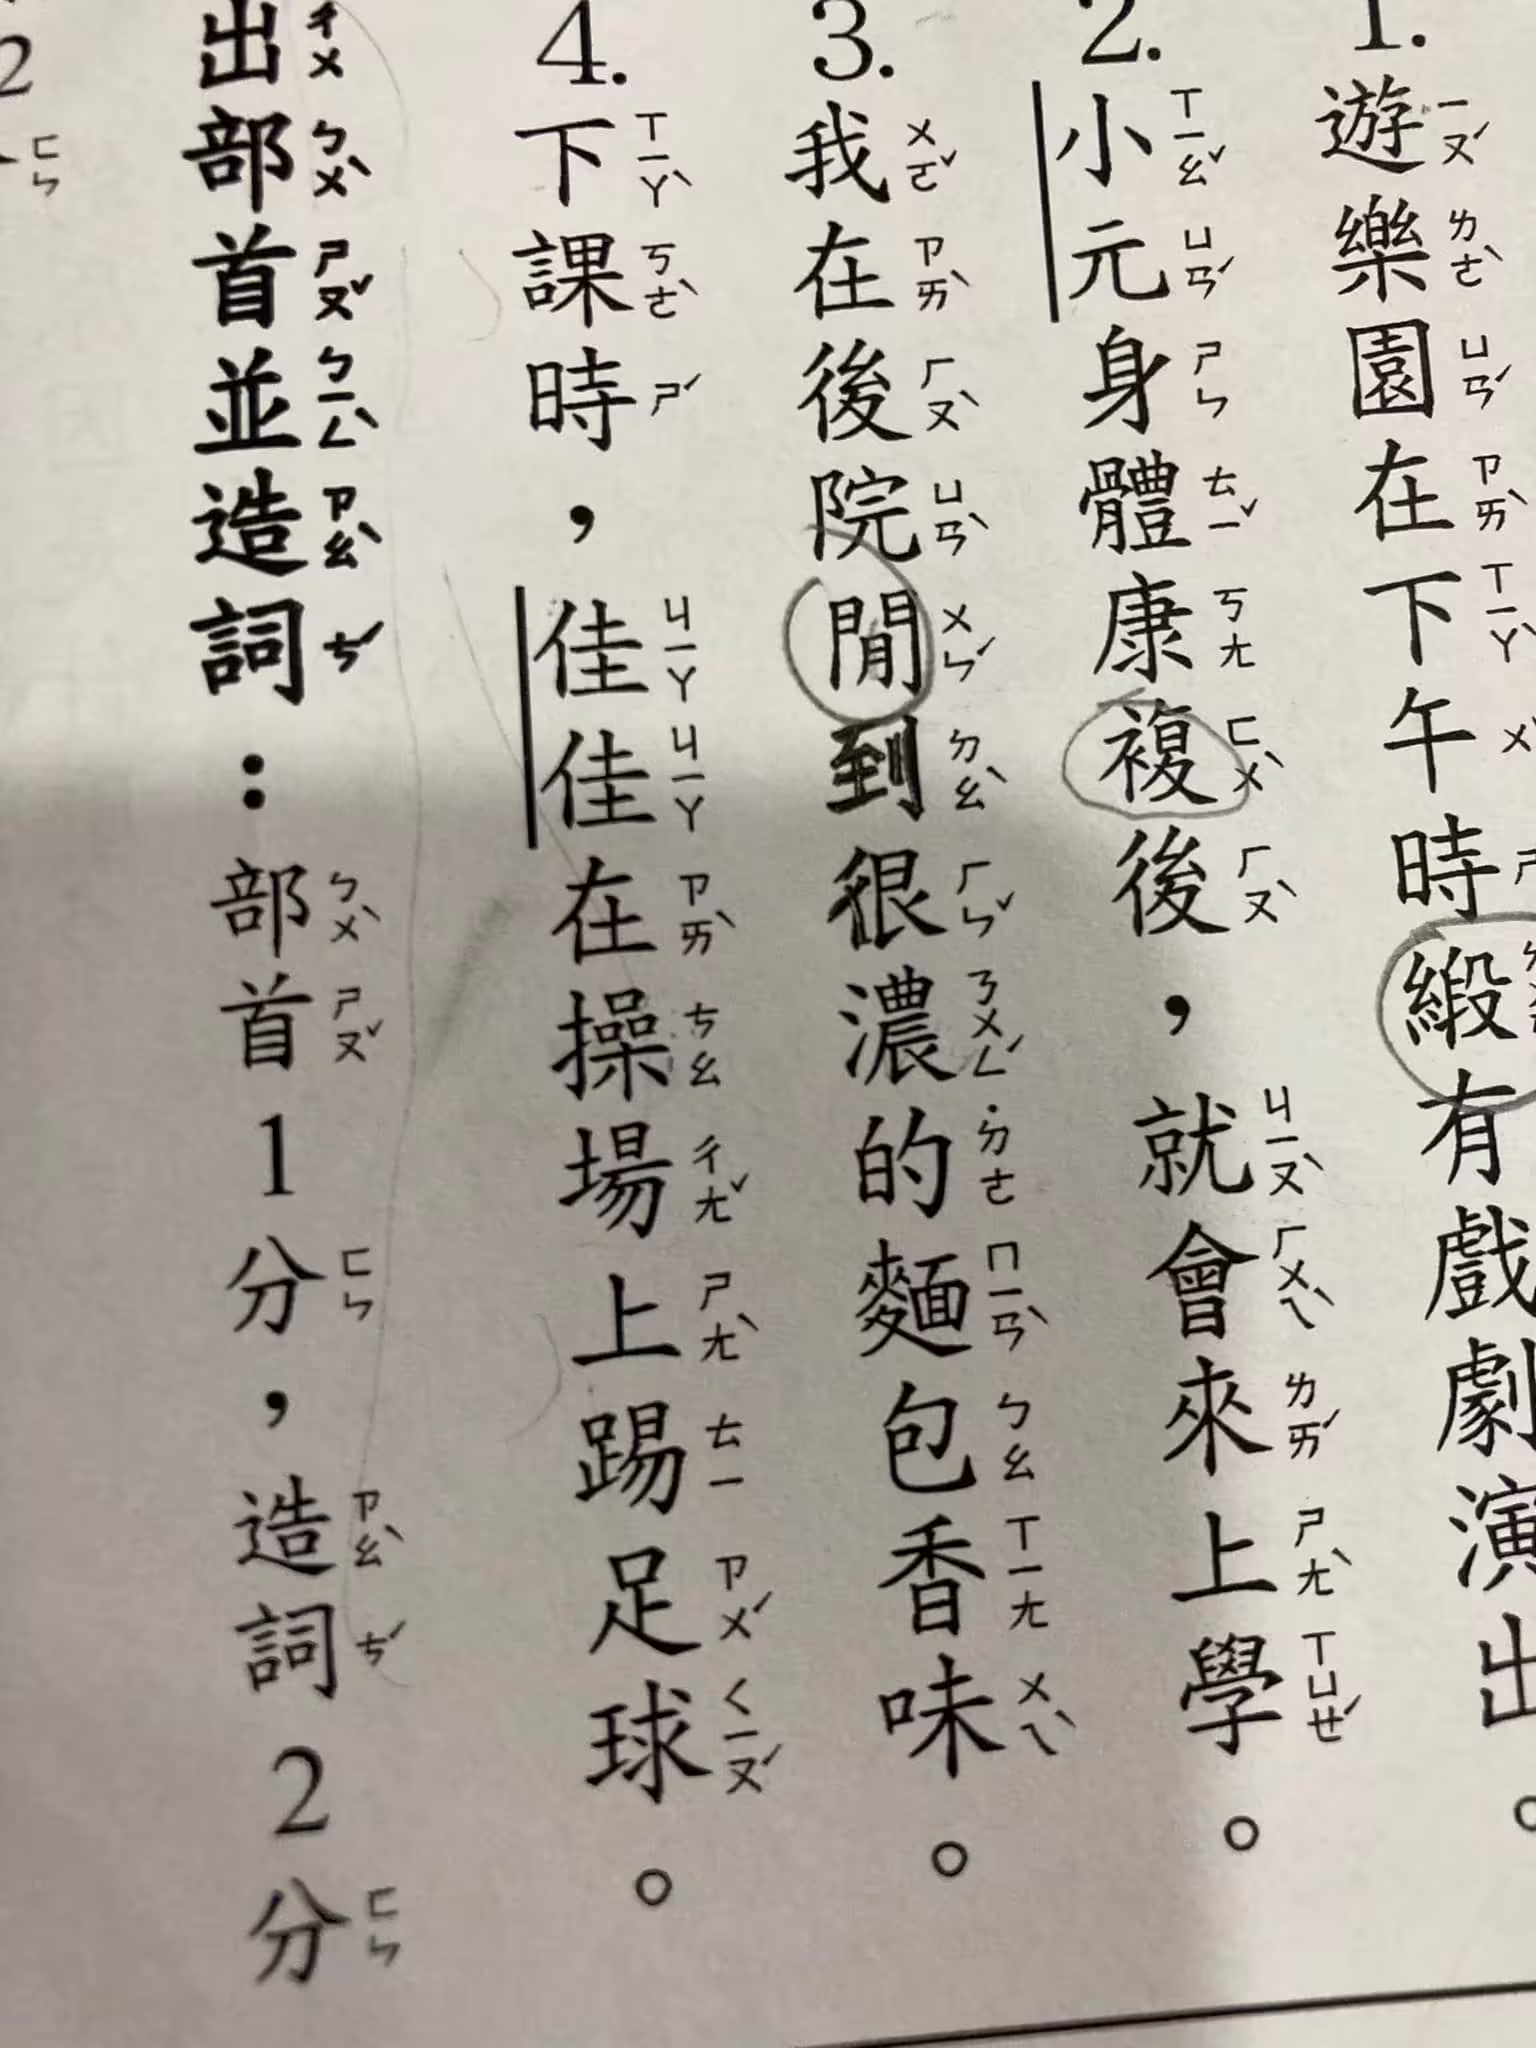 1.遊樂園在下午時緞有戲劇演出。
2.小元身體康複後，就會來上學。
3.我在後院閒到很濃的麵包香味。
4.下課時，佳佳在操場上踢足球。
出部首並造詞：部首1分，造詞2分
2